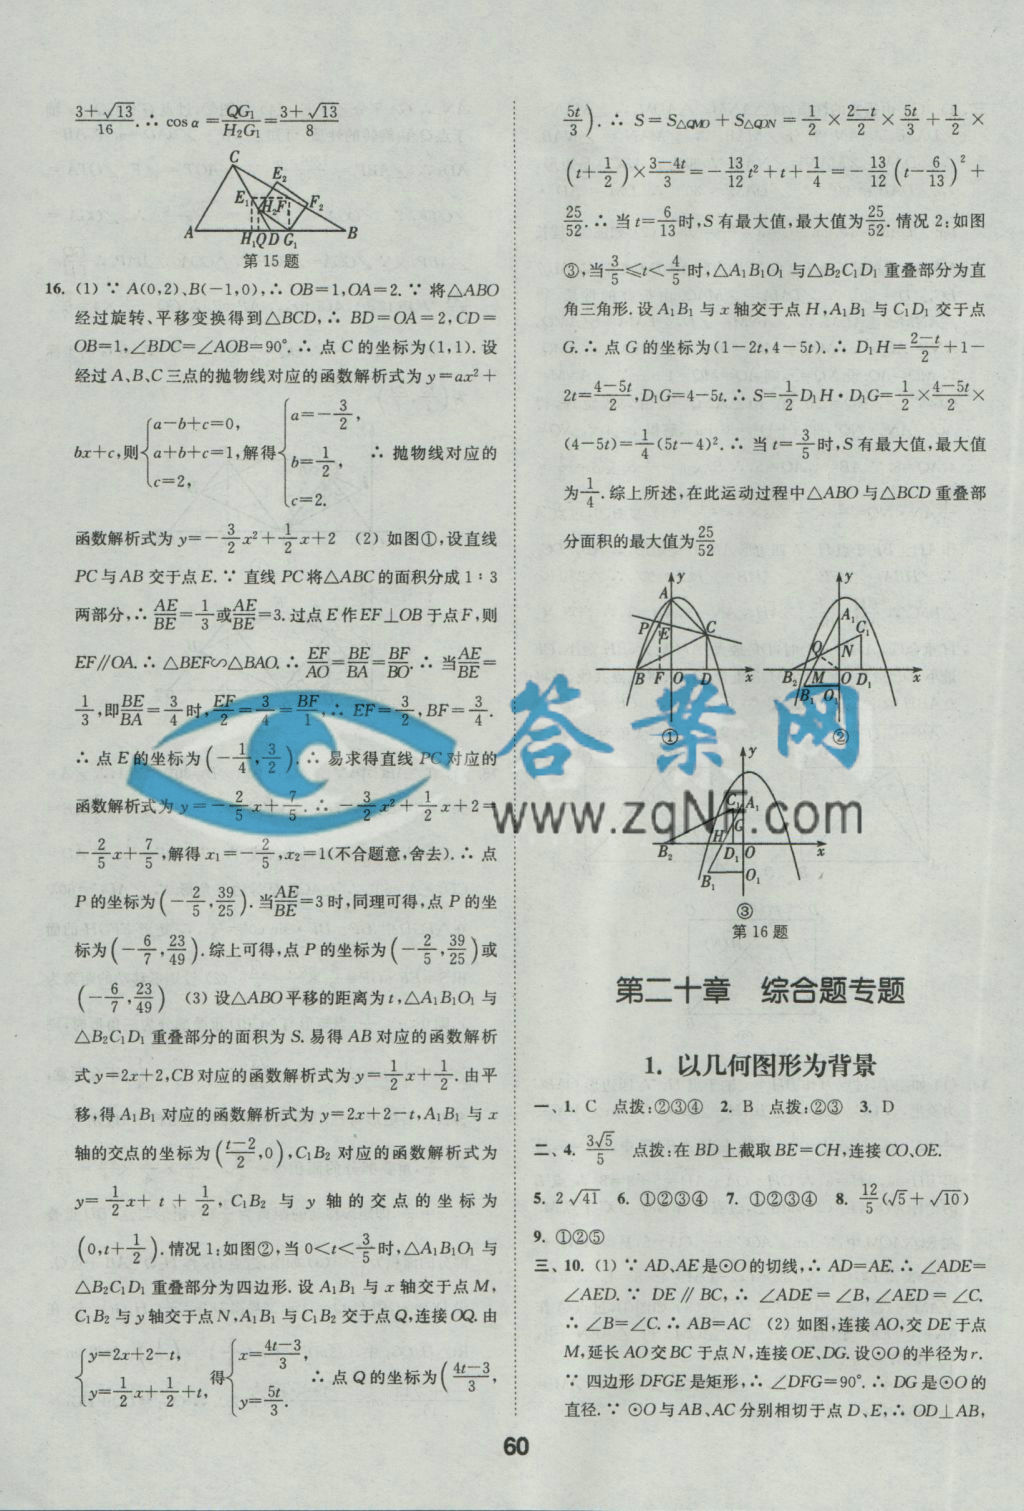 (3+√13)/16.∴ cosα=QG₁/H₂G₁=(3+√13)/8
C
E₂
E₁
H₂F₁
F₂
A
H₁QD G₁
B
第15题
16. (1) ∵ A(0,2)、B(-1,0),∴ OB=1,OA=2.∵ 将△ABO
经过旋转、平移变换得到△BCD,∴ BD=OA=2,CD=
OB=1,∠BDC=∠AOB=90°.∴ 点C的坐标为(1,1).设
经过A、B、C三点的抛物线对应的函数解析式为y=ax²+
bx+c,则{a-b+c=0, a+b+c=1, c=2, 解得{a=-3/2, b=1/2, c=2. ∴ 抛物线对应的
函数解析式为y=-3/2x²+1/2x+2 (2) 如图①,设直线
PC与AB交于点E.∵ 直线PC将△ABC的面积分成1∶3
两部分,∴ AE/BE=1/3或AE/BE=3.过点E作EF⊥OB于点F,则
EF∥OA.∴ △BEF∽△BAO.∴ EF/AO=BE/BA=BF/BO.∴ 当AE/BE=
1/3,即BE/BA=3/4时,EF/2=3/4=BF/1,∴ EF=3/2,BF=3/4.
∴ 点E的坐标为(-1/4,3/2).∴ 易求得直线PC对应的
函数解析式为y=-2/5x+7/5.∴ -3/2x²+1/2x+2=
-2/5x+7/5,解得x₁=-2/5,x₂=1(不合题意,舍去).∴ 点
P的坐标为(-2/5,39/25).当AE/BE=3时,同理可得,点P的坐
标为(-6/7,23/49).综上可得,点P的坐标为(-2/5,39/25)或
(-6/7,23/49) (3) 设△ABO平移的距离为t,△A₁B₁O₁与
△B₂C₁D₁重叠部分的面积为S.易得AB对应的函数解析
式y=2x+2,CB对应的函数解析式为y=1/2x+1/2.由平
移,得A₁B₁对应的函数解析式为y=2x+2-t,A₁B₁与x
轴的交点的坐标为((t-2)/2,0),C₁B₂对应的函数解析式为
y=1/2x+t+1/2,C₁B₂与y轴的交点的坐标为
(0,t+1/2).情况1:如图②,当0<t<3/5时,△A₁B₁O₁与
△B₂C₁D₁重叠部分为四边形.设A₁B₁与x轴交于点M,
C₁B₂与y轴交于点N,A₁B₁与C₁B₂交于点Q,连接OQ.由
{y=2x+2-t, y=1/2x+1/2+t, 得{x=(4t-3)/3, y=5t/3. ∴ 点Q的坐标为((4t-3)/3,
5t/3).∴ S=S△QMO+S△QON=1/2×(2-t)/2×5t/3+1/2×
(t+1/2)×(3-4t)/3=-13/12t²+t+1/4=-13/12(t-6/13)²+
25/52.∴ 当t=6/13时,S有最大值,最大值为25/52.情况2:如图
③,当3/5≤t<4/5时,△A₁B₁O₁与△B₂C₁D₁重叠部分为直
角三角形.设A₁B₁与x轴交于点H,A₁B₁与C₁D₁交于点
G.∴ 点G的坐标为(1-2t,4-5t).∴ D₁H=(2-t)/2+1-
2t=(4-5t)/2,D₁G=4-5t.∴ S=1/2D₁H·D₁G=1/2×(4-5t)/2×
(4-5t)=1/4(5t-4)².∴ 当t=3/5时,S有最大值,最大值
为1/4.综上所述,在此运动过程中△ABO与△BCD重叠部
分面积的最大值为25/52
y
A
P
E
C
B F O D x
①
y
A₁
C₁
Q
N
B₂ M O D₁ x
B₁ O₁
②
y
C₁
A₁
G
H
B₂ D₁ O x
B₁ O₁
③
第16题
答案网
www.zqNF.com
第二十章 综合题专题
1. 以几何图形为背景
一、1. C 点拨:②③④ 2. B 点拨:②③ 3. D
二、4. 3√5/5 点拨:在BD上截取BE=CH,连接CO、OE.
5. 2√41 6. ①②③④ 7. ①②③④ 8. 12/5(√5+√10)
9. ①②⑤
三、10. (1) ∵ AD、AE是⊙O的切线,∴ AD=AE.∴ ∠ADE=
∠AED.∵ DE∥BC,∴ ∠ADE=∠B,∠AED=∠C.
∴ ∠B=∠C.∴ AB=AC (2) 如图,连接AO,交DE于点
M,延长AO交BC于点N,连接OE、DG.设⊙O的半径为r.
∵ 四边形DFGE是矩形,∴ ∠DFG=90°.∴ DG是⊙O的
直径.∵ ⊙O与AB、AC分别相切于点D、E,∴ OD⊥AB,
60